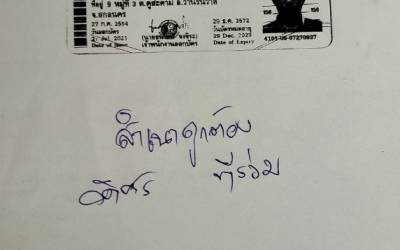 ที่อยู่ 9 หมู่ที่ 3 ต.คูสะคาม อ.วานรนิวาส
จ.สกลนคร
27 ก.ค. 2564
วันออกบัตร
27 Jul. 2021
Date of Issue
เจ้าพนักงานออกบัตร
29 ธ.ค. 2572
วันบัตรหมดอายุ
29 Dec. 2029
Date of Expiry
150
150
สำเนาถูกต้อง
ทีร่วม